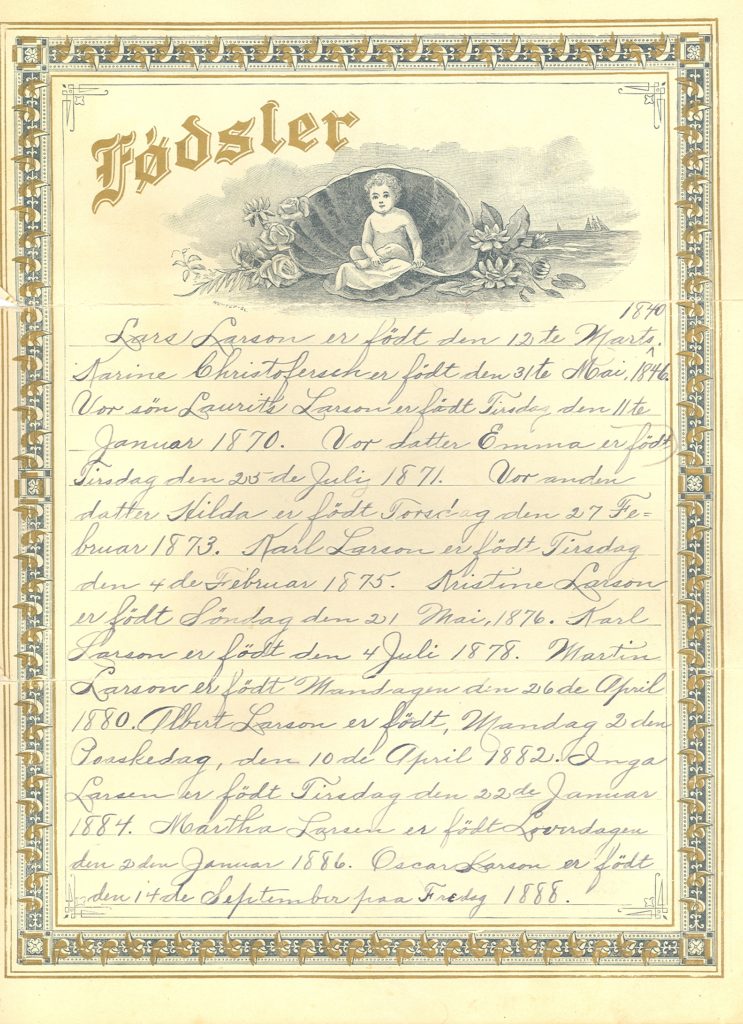 Fødsler
1840
Lars Larson er född den 12te Marts.
Karine Christofersen er född den 31te Mai, 1846.
Vor sön Laurits Larson er född Tirsdag den 11te
Januar 1870. Vor datter Emma er född
Tirsdag den 25de Juli 1871. Vor anden
datter Hilda er född Torsdag den 27 Fe=
bruar 1873. Karl Larson er född Tirsdag
den 4de Februar 1875. Kristine Larson
er född Söndag den 21 Mai, 1876. Karl
Larson er född den 4 Juli 1878. Martin
Larson er född Mandagen den 26de April
1880. Albert Larson er född, Mandag 2den
Paaskedag, den 10de April 1882. Inga
Larsen er född Tirsdag den 22de Januar
1884. Martha Larsen er född Loverdagen
den 2den Januar 1886. Oscar Larson er född
den 14de September paa Fredag 1888.